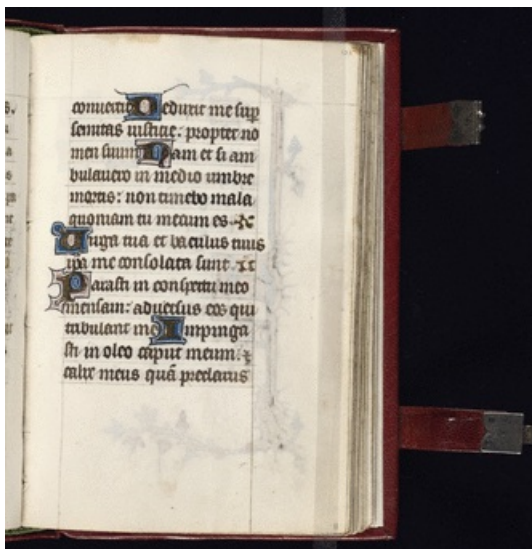 convertit Deduxit me sup
semitas iusticie: propter no
men suum Nam et si am
bulauero in medio umbre
mortis: non timebo mala
quoniam tu mecum es
Uirga tua et baculus tuus
ipa me consolata sunt
Parasti in conspectu meo
mensam: aduersus eos qui
tribulant me Impingua
sti in oleo caput meum: et
calix meus quā preclarus